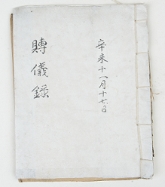 辛未十一月十七日
賻儀錄